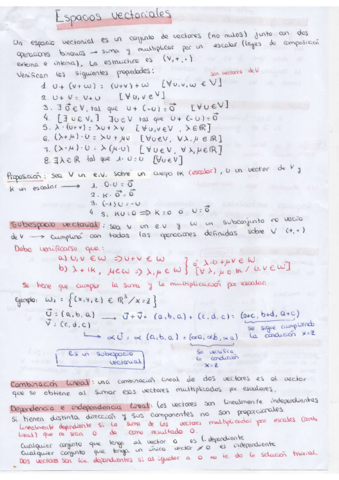 Espacios vectoriales
Un espacio vectorial es un conjunto de vectores (no nulos) junto con dos
operaciones binarias → suma y multiplicar por un escalar (leyes de composición
externa e interna). La estructura es (V,+,·)
Verifican las siguientes propiedades: son vectores de V
1. u+(v+w) = (u+v)+w [∀u,v,w ∈ V]
2. u+v = v+u [∀u,v∈V]
5. λ·(u+v) = λu+λv [∀u,v∈V, λ∈ℝ]
6. (λ+μ)·u = λu+μv [∀u∈V, ∀λ,μ∈ℝ]
7. (λ·μ)·u = λ(μ·u) [∀u∈V, ∀λ,μ∈ℝ]
8. ∃λ∈ℝ tal que 1·u=u [∀u∈V]
Proposición: sea V un e.v. sobre un cuerpo K (escalar), u un vector de V y
K un escalar → 1. 0·u=0⃗
2. K·0⃗=0⃗
3. (-1)u=-u
Subespacio vectorial: sea V un e.v y W un subconjunto no vacío
de V → cumplirá con todas las operaciones definidas sobre V (+,·)
Debe verificarse que:
a) u,v ∈W ⇒ u+v ∈W
Se hace que cumpla la suma y la multiplicación por escalar
Ejemplo: W₁ = {(x,y,z) ∈ ℝ³/x=z}
u⃗=(a,b,a)
v⃗=(c,d,c)
→ u⃗+v⃗ = (a,b,a)+(c,d,c) = (a+c, b+d, a+c)
se sigue cumpliendo
la condición
x=z
→ αu⃗ = α(a,b,a) = (αa,αb,αa)
Es un subespacio
vectorial
se verifica
la condición
x=z
Combinación lineal: una combinación lineal de dos vectores es el vector
que se obtiene al sumar esos vectores multiplicados por escalares.
Dependencia e independencia lineal: los vectores son linealmente independientes
si tienen distinta dirección y sus componentes no son proporcionales
Linealmente dependiente si la suma de los vectores multiplicados por escalares (comb.
lineal) que no sean 0 da como resultado 0.
Cualquier conjunto que tenga al vector 0 es l. dependiente
Cualquier conjunto que tenga un único vector ≠ 0 es independiente
Dos vectores son lin. dependientes si al igualar a 0 no te da la solución trivial.